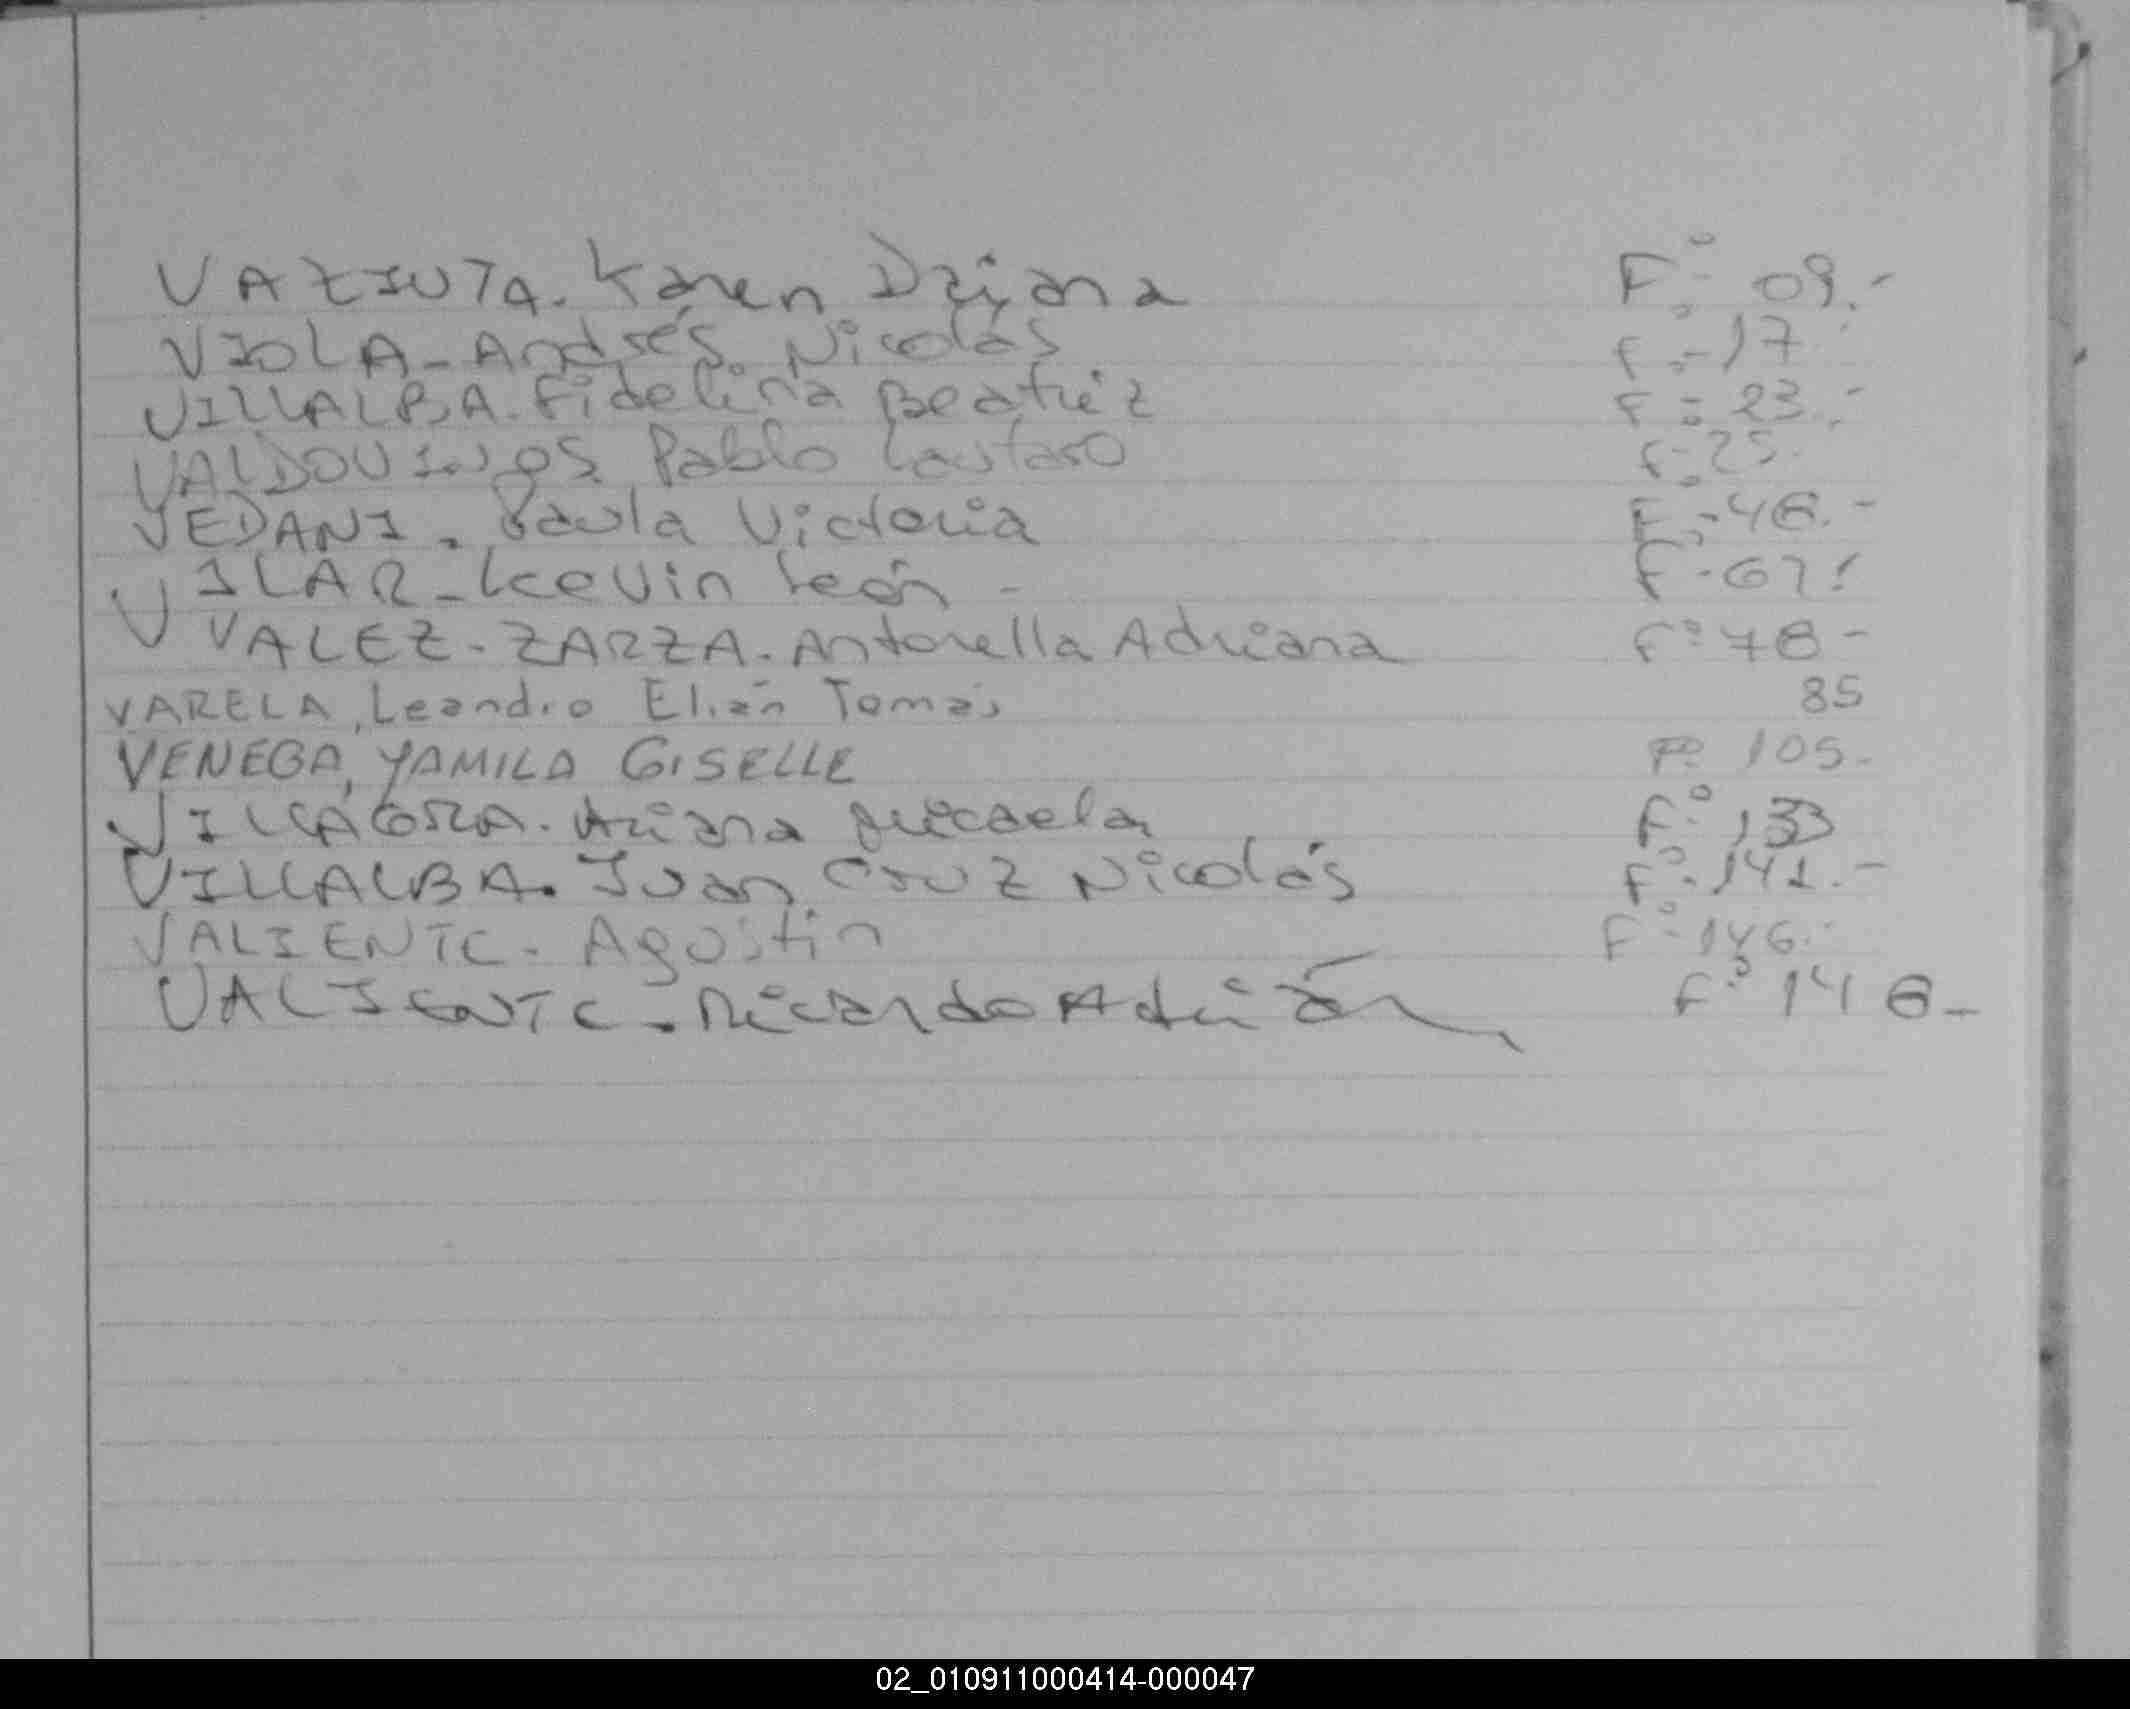 VAZINTA. Karen Daiana F° 09.-
VIOLA - Andrés Nicolás F° 17
VILLALBA. Fidelina Beatriz F° 23.-
VALDOVINOS. Pablo Lautaro F° 25.
VEDANI. Paula Victoria F° 46.-
VILAR - Kevin León - F°
VALEZ - ZARZA. Antonella Adriana F° 78 -
VARELA, Leandro Elián Tomás 85
VENEGA, YAMILA GISELLE F° 105.-
VILLAGRA. Ariana Micaela F° 133
VILLALBA. Juan Cruz Nicolás F° 141.-
VALIENTE - Agustín F° 146.-
VALIENTE - Ricardo Adrián F°
02_010911000414-000047